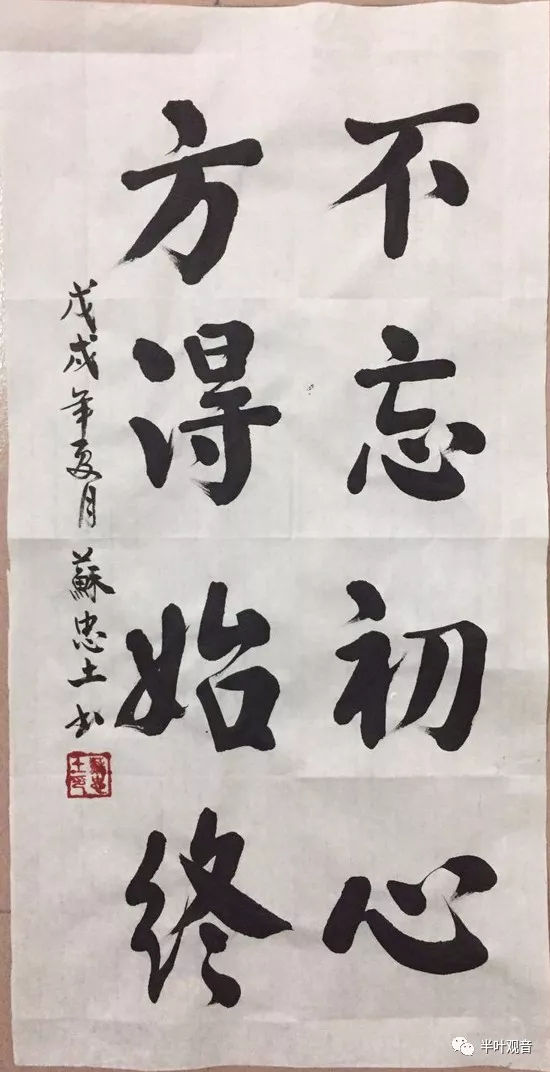 不忘初心
方得始终
戊戌年夏月 蘇忠土书
蘇忠土印
半叶观音